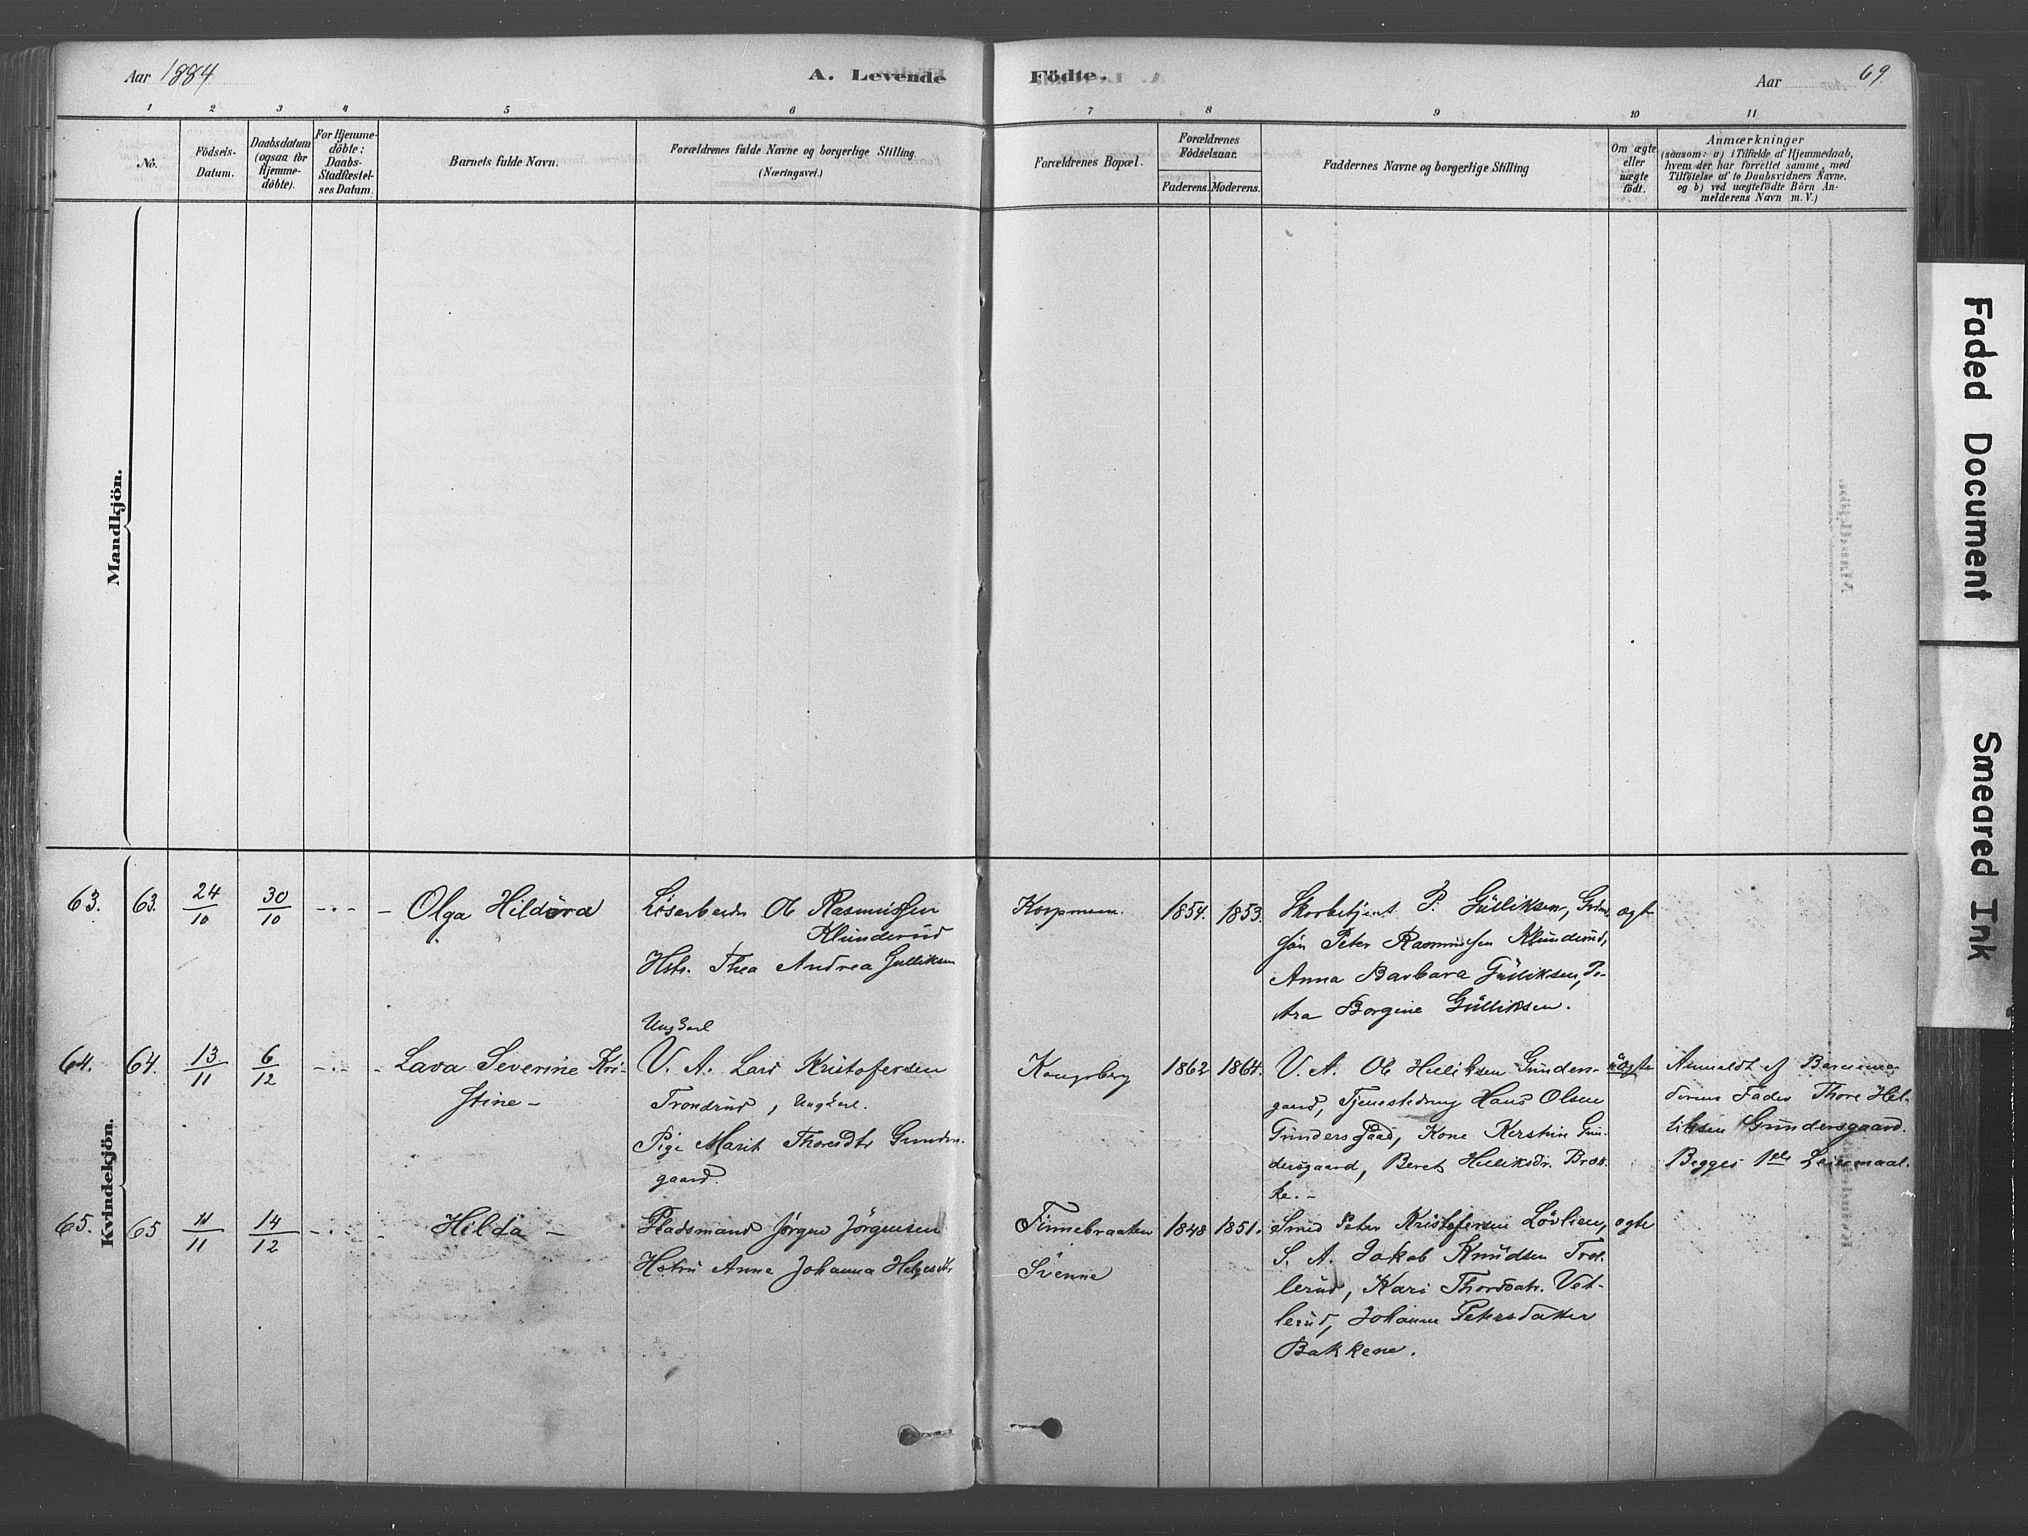 Aar 1884
A. Levende
Födte.
Aar
69.
1 2 3 4 5 6 7 8 9 10 11
No.
Födsels-
Datum.
Daabsdatum
(ogsaa for
Hjemme-
döbte).
For Hjemme-
döbte:
Daabs-
Stadfæstel-
ses Datum.
Barnets fulde Navn.
Forældrenes fulde Navne og borgerlige Stilling
(Næringsvei.)
Forældrenes Bopæl.
Forældrenes
Födselsaar.
Faderens. Moderens.
Faddernes Navne og borgerlige Stilling
Om ægte
eller
uægte
födt.
Anmærkninger
(saasom: a) i Tilfælde af Hjemmedaab,
hvem der har forrettet samme, med
Tilföielse af to Daabsvidners Navne.
og b) ved uægtefödte Börn An-
melderens Navn m. V.)
Mandkjön.
Kvindekjön.
63. 63. 24/10 30/10
Olga Hildöra
Ole Rasmussen
Klunderud
Hstr. Thea Andrea Gulliksen
1854. 1853.
P. Gulliksen,
Peter Rasmussen Klunderud,
Anna Barbara Gulliksen, Pe-
tra Borgine Gulliksen.
ægte
64. 64. 13/11 6/12
Lava Severine Kri-
stine -
Ungkarl
V. A. Lars Kristofersen
Trondrud, Ungkarl.
Pige Marit Thoresdtr Gunders-
gaard.
Kongsberg
1862 1864.
V. A. Ole Helliksen Gunders-
gaard, Tjenestedreng Hans Olsen
Gundersgaard, Kone Kerstine Gun-
dersgaard, Beret Helliksdr. Brek-
ke. -
uægte
Anmeldt af Barnemo-
derens Fader Thore Hel-
liksen Gundersgaard.
Begges 1ste Leiermaal.
65. 65 11/11 14/12
Hilda -
Pladsmand Jörgen Jörgensen
Hstru Anne Johanna Helgesdtr
Finnebraaten
Svenne
1848 1851.
Smed Peter Kristofersen Lövlien,
S. A. Jakob Knudsen Trol-
lerud, Kari Thordsdtr. Vet-
lerud, Johanne Petersdatter
Bakkene.
ægte
Faded Document
Smeared Ink